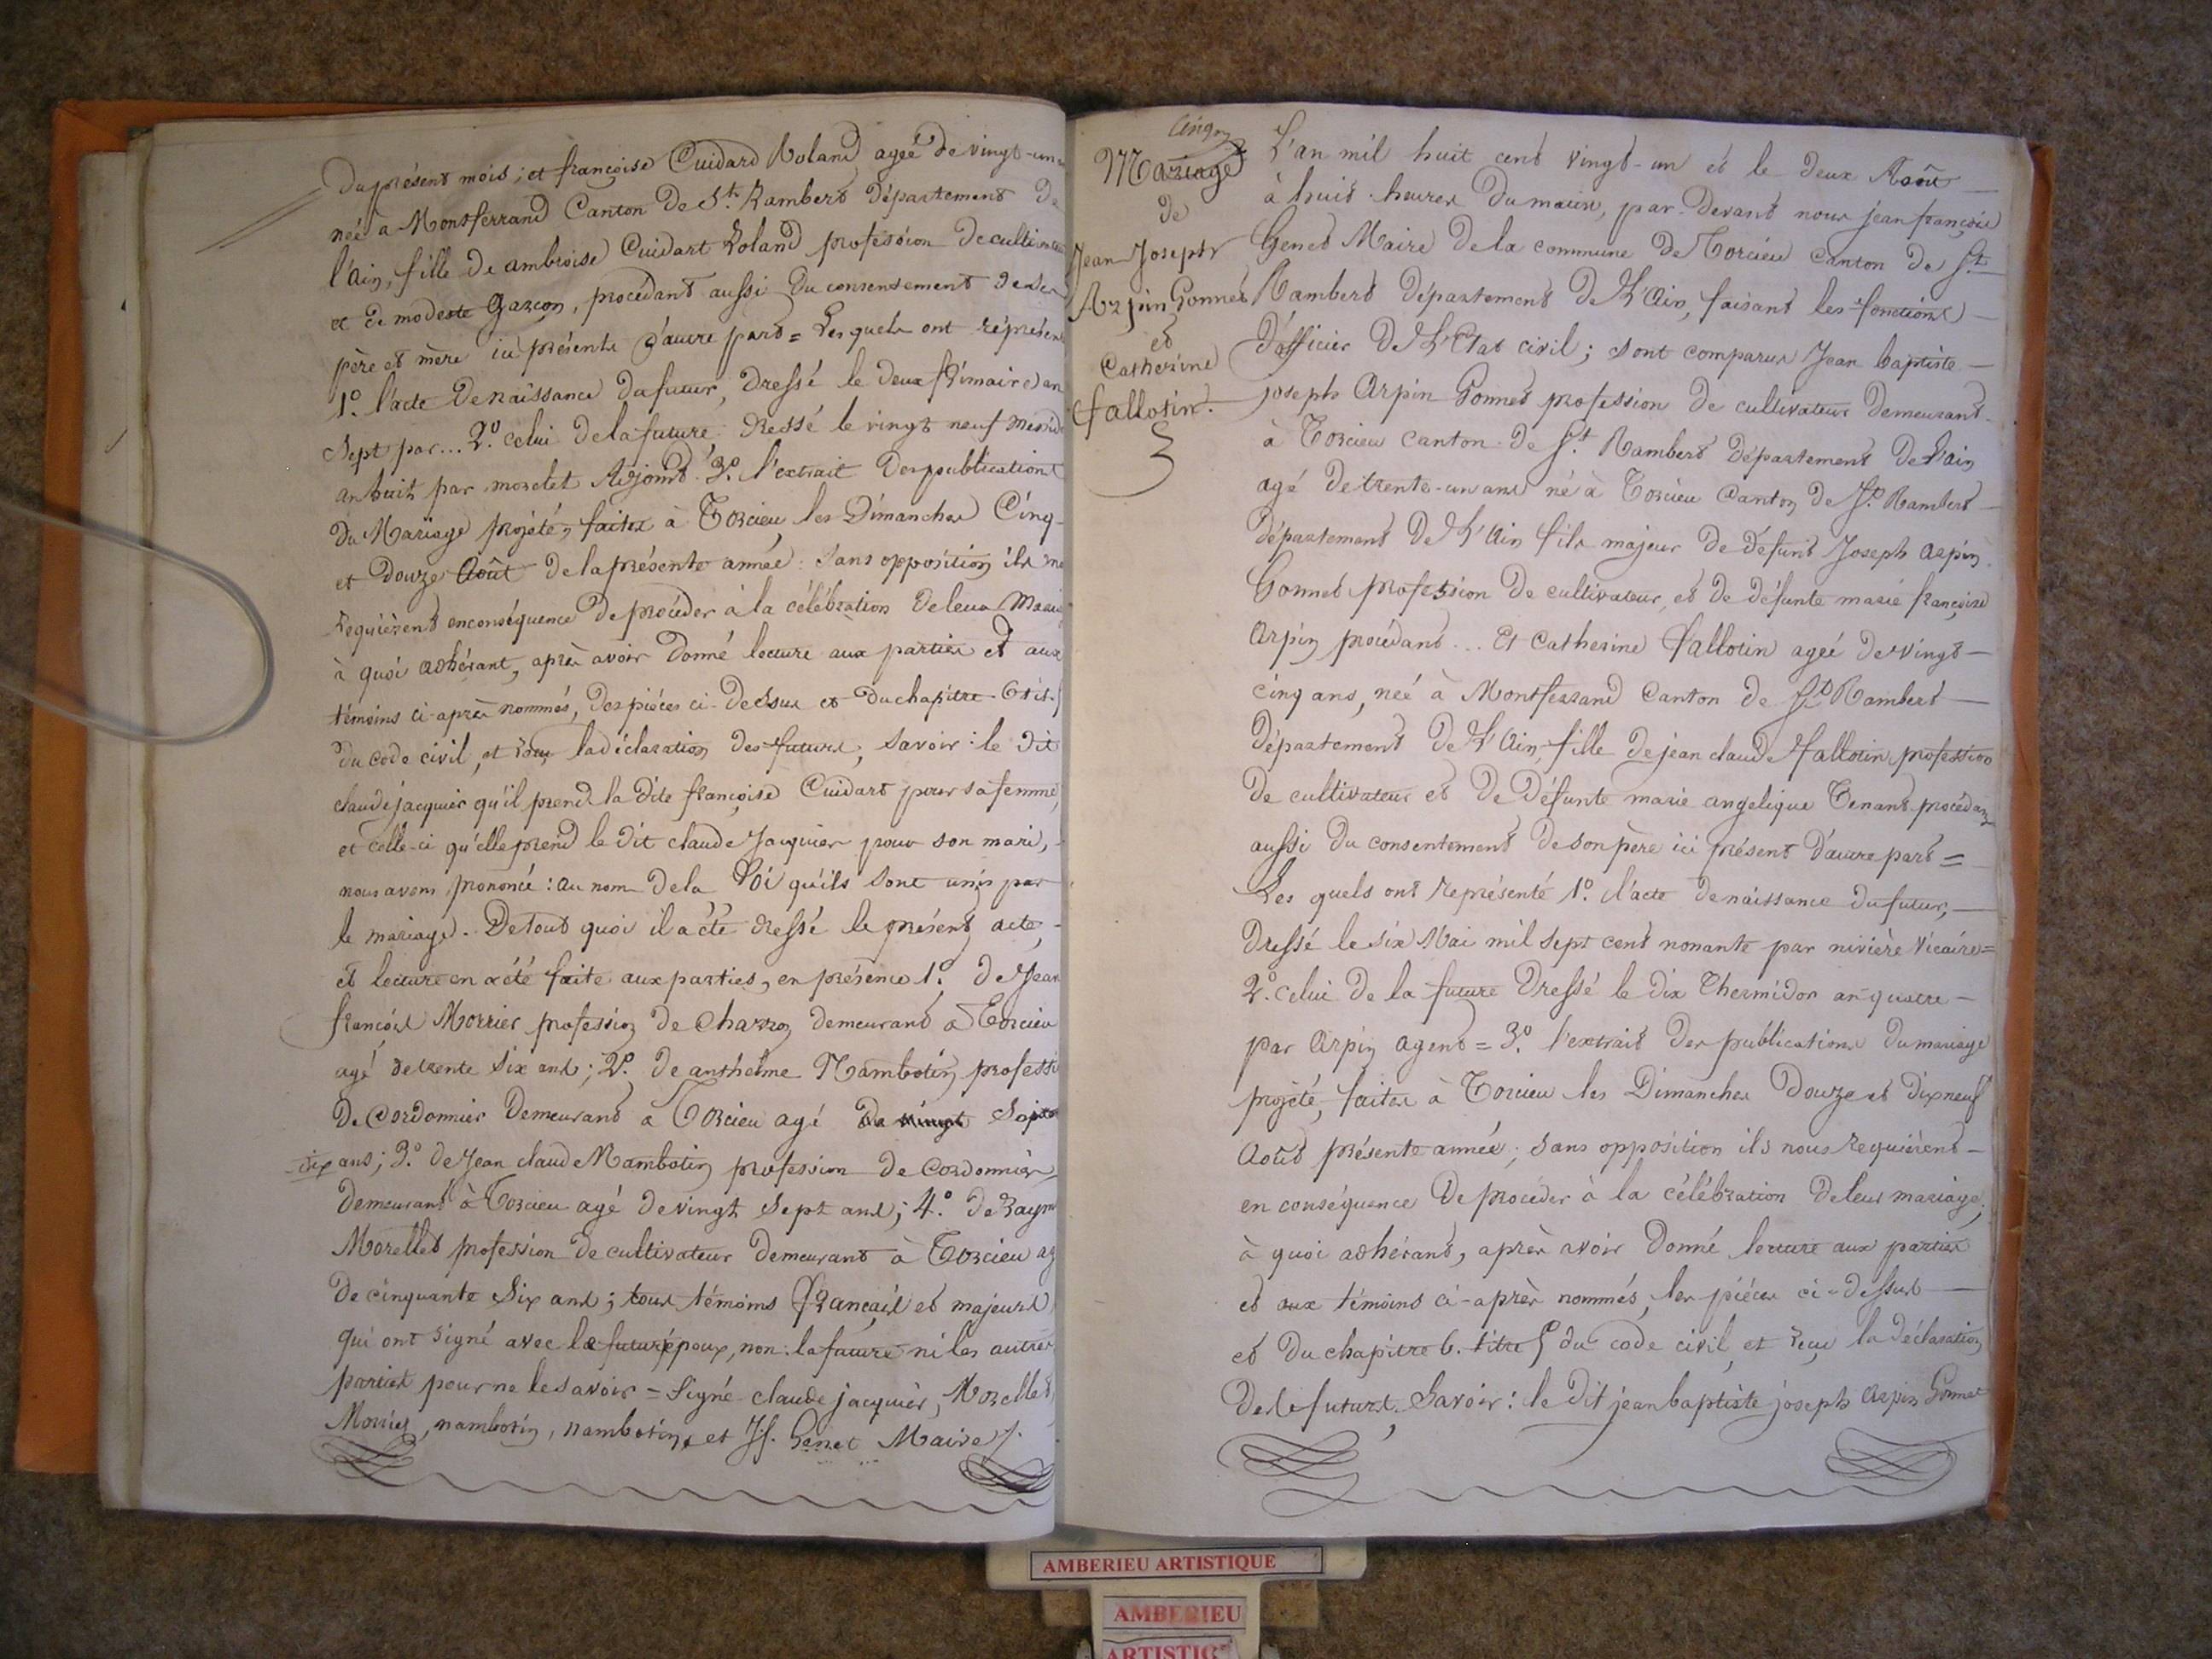 du présent mois ; et françoise Cuidard Roland agée de vingt-un
née à Montferrand Canton de St. Rambert département de
l'ain, fille de ambroise Cuidart Roland profession de cultivateur
et de modeste Garçon, procédant aussi du consentement de ses
père et mère ici présents d'autre part = Les quels ont réprésen
1º. l'acte de naissance du futur, dressé le deux frimaire an
sept par... 2º. celui de la future dressé le vingt neuf messid
an huit par morelet Adjoint 3º. l'extrait des publications
du Mariage projeté, faites à Torcieu les Dimanches Cinq
et douze Août de la présente année : sans opposition ils n
requièrent en conséquence de procéder à la célébration de leur Maria
à quoi adhérant, après avoir donné lecture aux parties et aux
témoins ci-après nommés, des pièces ci-dessus et du chapitre 6 tit. 5
du code civil, et reçu la déclaration des futurs, savoir : le dit
claude jacquier qu'il prend la dite françoise Cuidart pour sa femme,
et celle-ci qu'elle prend le dit claude Jacquier pour son mari,
nous avons prononcé : au nom de la Loi qu'ils sont unis par
le mariage. De tout quoi il a été dressé le présent acte,
et lecture en a été faite aux parties, en présence 1º. de Jean
françois Morrier profession de Charron demeurant à Torcieu
agé de trente six ans ; 2º. de anthelme Nambotin professi
de Cordonnier demeurant à Torcieu agé de vingt Soixan
dix ans ; 3º. de Jean claude Nambotin profession de Cordonnier
demeurant à Torcieu agé de vingt sept ans ; 4º. de Raym
Morellet profession de cultivateur demeurant à Torcieu ag
de cinquante six ans ; tous témoins français et majeurs
qui ont signé avec le futur époux, non la future ni les autres
parties pour ne le savoir = Signé claude jacquier, Morellet,
Morrier, nambotin, nambotin, et Jf. Genet Maire
Mariage
de
Jean Joseph
Arpin Gonnet
et
Catherine
fallotin.
L'an mil huit cent vingt-un et le deux Août
à huit heures du matin, par devant nous jean françois
Genet Maire de la commune de Torcieu Canton de St
Rambert département de L'Ain, faisant les fonctions
d'officier de L'Etat civil ; sont comparus Jean baptiste
joseph Arpin Gonnet profession de cultivateur demeurant
à Torcieu canton de St. Rambert département de L'ain
agé de trente-un ans né à Torcieu Canton de St. Rambert
département de L'Ain fils majeur de défunt Joseph arpin
Gonnet profession de cultivateur, et de défunte marie françoise
Arpin procédant ... Et Catherine fallotin agée de vingt
cinq ans, née à Montferrand Canton de St Rambert
département de L'Ain, fille de jean claude fallotin profession
de cultivateur et de défunte marie angelique Tenant procédant
aussi du consentement de son père ici présent d'autre part =
Les quels ont représenté 1º. l'acte de naissance du futur,
dressé le six Mai mil sept cent nonante par nivière Vicaire =
2º. celui de la future dressé le dix Thermidor an quatre
par Arpin agent = 3º. l'extrait des publications du mariage
projeté, faites à Torcieu les Dimanches Douze et dix neuf
Août présente année ; sans opposition ils nous requièrent
en conséquence de procéder à la célébration de leur mariage ;
à quoi adhérant, après avoir donné lecture aux parties
et aux témoins ci-après nommés, les pièces ci-dessus
et du chapitre 6. titre 5 du code civil, et reçu la déclaration
des futurs, Savoir : le dit jean baptiste joseph arpin Gonnet
AMBERIEU ARTISTIQUE
AMBERIEU
ARTISTIC